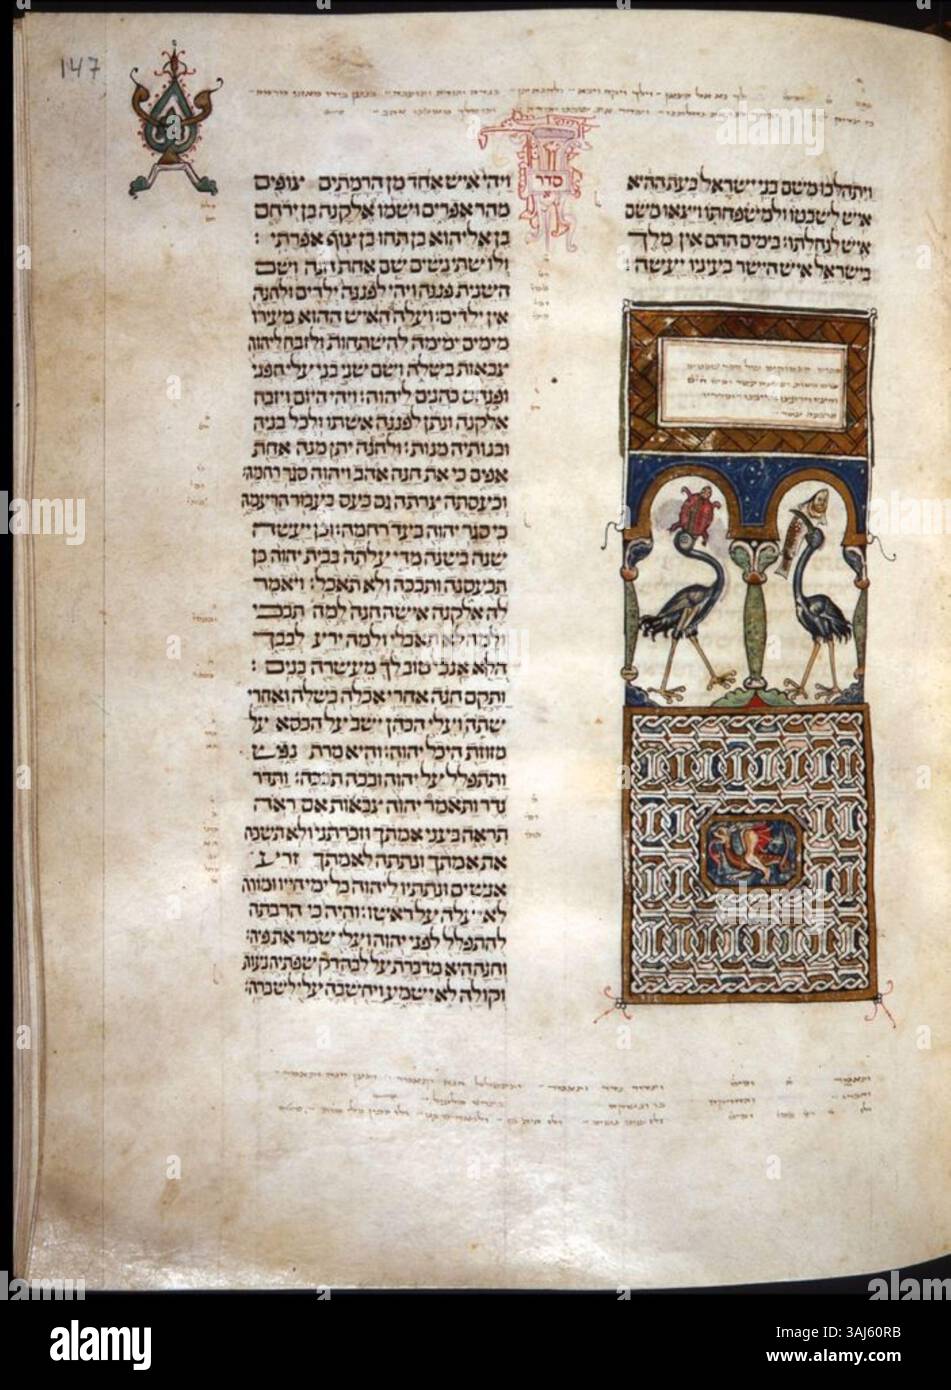 147
ויתהלכו משם בני ישראל בעת ההיא
איש לשבטו ולמשפחתו ויצאו משם
איש לנחלתו: בימים ההם אין מלך
בישראל איש הישר בעיניו יעשה:
סדר
ויהי איש אחד מן הרמתים צופים
מהר אפרים ושמו אלקנה בן ירחם
בן אליהוא בן תחו בן צוף אפרתי:
ולו שתי נשים שם אחת חנה ושם
השנית פננה ויהי לפננה ילדים ולחנה
אין ילדים: ועלה האיש ההוא מעירו
מימים ימימה להשתחות ולזבח ליהוה
צבאות בשלה ושם שני בני עלי חפני
ופנחס כהנים ליהוה: ויהי היום ויזבח
אלקנה ונתן לפננה אשתו ולכל בניה
ובנותיה מנות: ולחנה יתן מנה אחת
אפים כי את חנה אהב ויהוה סגר רחמה:
וכעסתה צרתה גם כעס בעבור הרעמה
כי סגר יהוה בעד רחמה: וכן יעשה
שנה בשנה מדי עלתה בבית יהוה כן
תכעסנה ותבכה ולא תאכל: ויאמר
לה אלקנה אישה חנה למה תבכי
ולמה לא תאכלי ולמה ירע לבבך
הלא אנכי טוב לך מעשרה בנים:
ותקם חנה אחרי אכלה בשלה ואחרי
שתה ועלי הכהן ישב על הכסא על
מזוזת היכל יהוה: והיא מרת נפש
ותתפלל על יהוה ובכה תבכה: ותדר
נדר ותאמר יהוה צבאות אם ראה
תראה בעני אמתך וזכרתני ולא תשכח
את אמתך ונתתה לאמתך זרע
אנשים ונתתיו ליהוה כל ימי חייו ומורה
לא יעלה על ראשו: והיה כי הרבתה
להתפלל לפני יהוה ועלי שמר את פיה:
וחנה היא מדברת על לבה רק שפתיה נעות
וקולה לא ישמע ויחשבה עלי לשכרה:
alamy
Image ID: 2AJ60RB
www.alamy.com